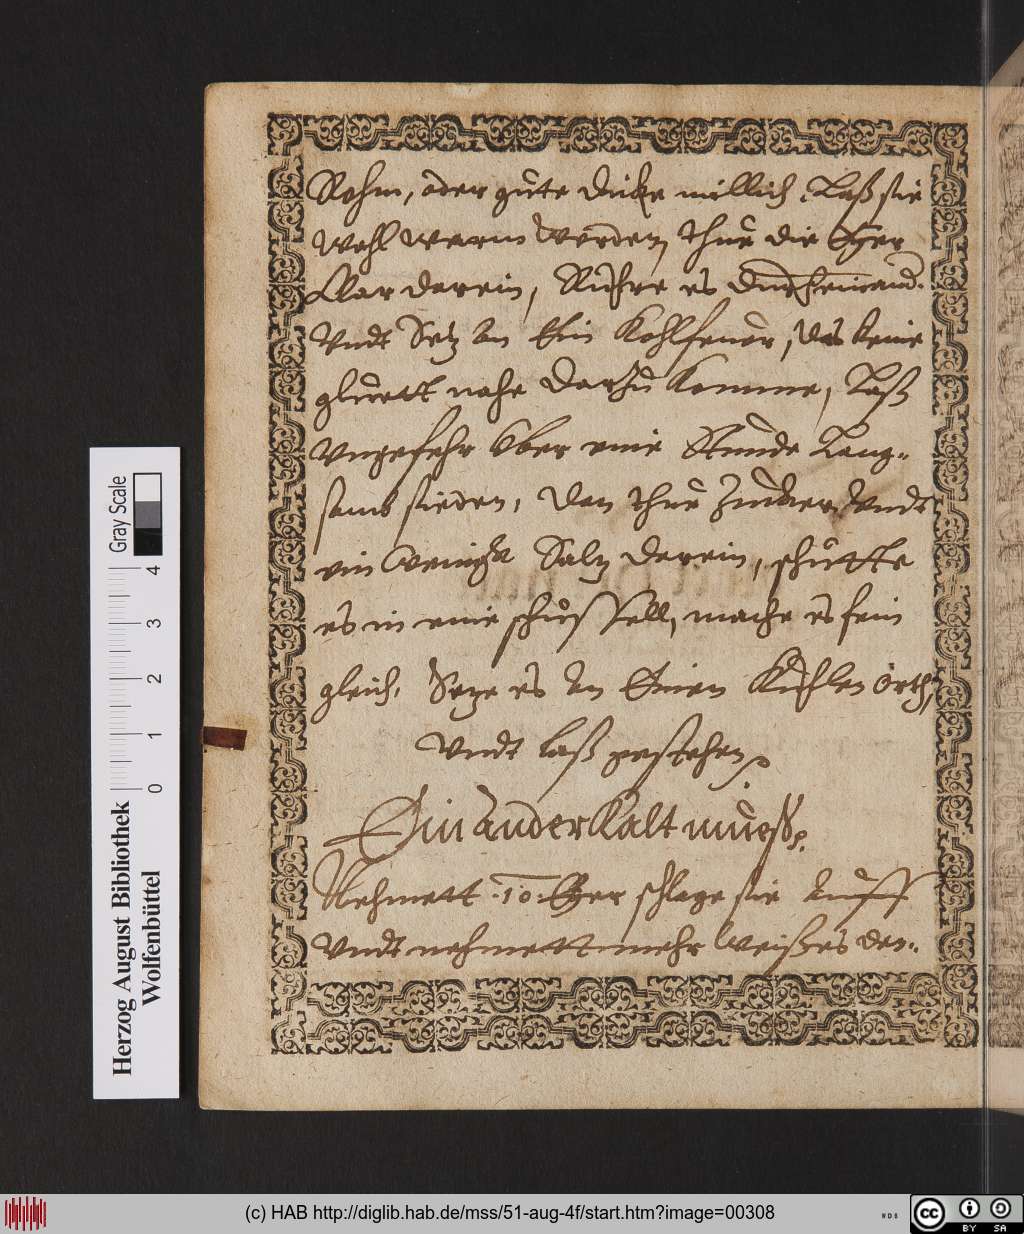 Rohm, oder gute dicke millich. Laß sie
wohl warm werden, thue die Eyer
klar darein, Rühre es durcheinand.
Vndt Setz an Ein Kohlfeuer, das keine
gluett nahe darzu komme, Laß
vngefehr Vber eine Stunde Lang-
samb sieden, dan thue Zucker Vndt
ein wenig Saltz darein, schütte
es in eine schüssell, mache es fein
gleich. Setze es an Einen Kühlen örth,
Vndt laß gestehen
Ein ander Kalt mueß.
Nehmett .10. Eyer schlage sie auff
Vndt nehmett mehr weißes dar.
Herzog August Bibliothek
Wolfenbüttel
0 1 2 3 4
Gray Scale
(c) HAB http://diglib.hab.de/mss/51-aug-4f/start.htm?image=00308
WDB
cc
BY SA